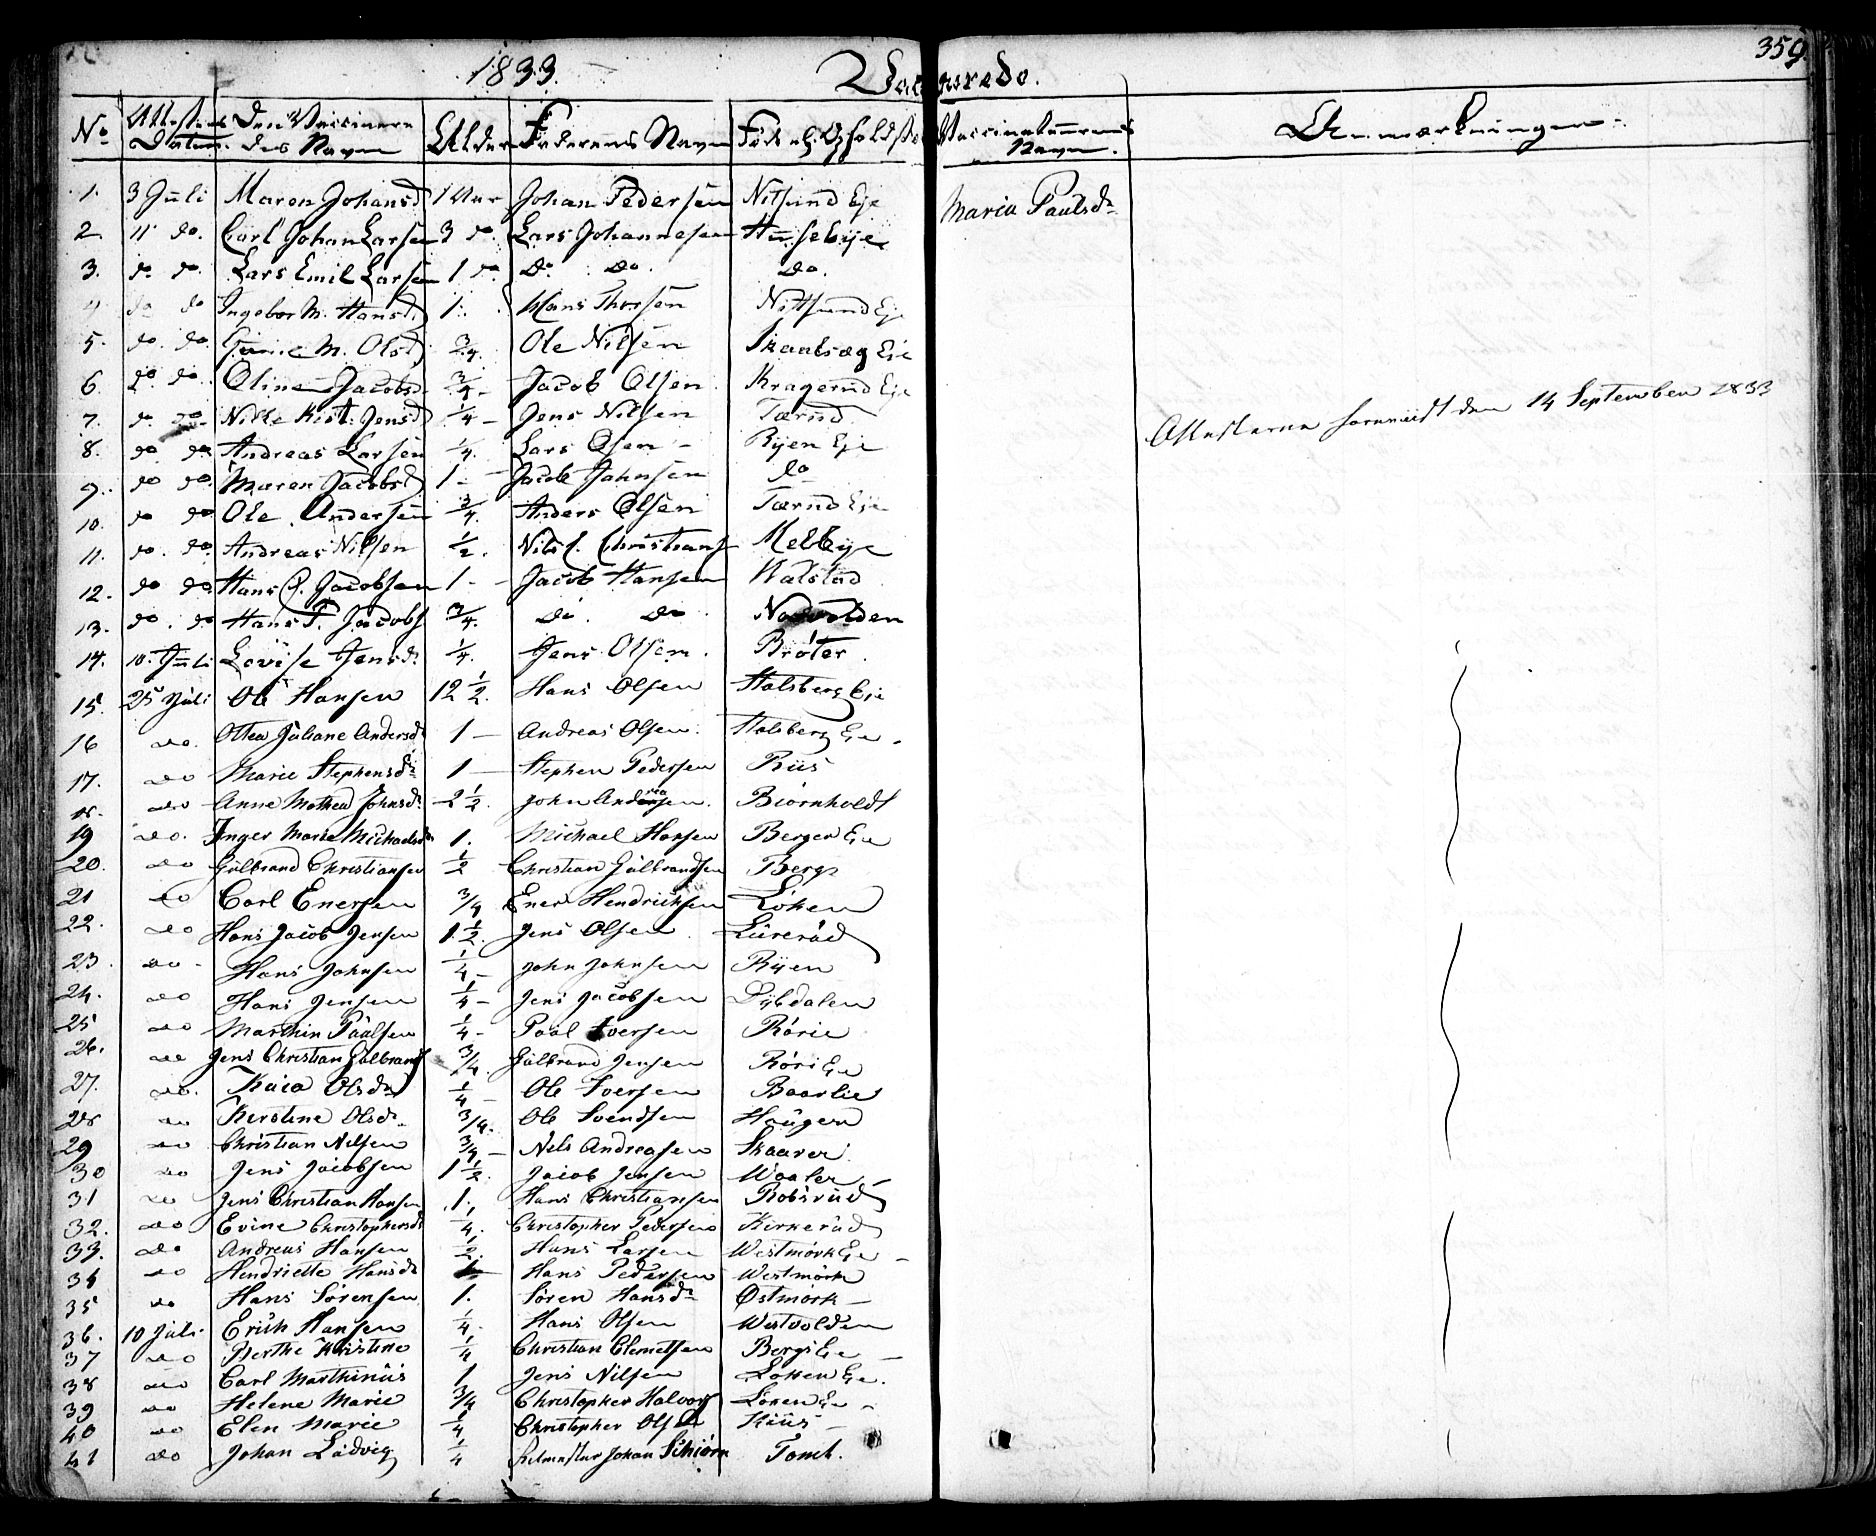 1833 Vaccinerede. 359.
No Attestens Datum. Den Vaccineredes Navn Alder Faderens Navn Føde el. Opholdsted Vaccinateurens Navn. Anmærkninger.
1. 3 Juli Maren Johansd 1 Aar Johan Pedersen Nitsund Eje Maria Paulsdr
2. 11 do. Carl Johan Larsen 3 do. Lars Johannesen Husebye
3. do do. Lars Emil Larsen 1 do Do. Do. Do.
4 do do Ingebor M. Hansd 1. Hans Thorsen Nittsund Eje
5. do. do. M. Olsd 3/4. Ole Nilsen Eje
6. do. do. Oline Jacobsd. 3/4 - Jacob Olsen Kragerud Eje
7. do do Kist. Jensd 1/4 - Jens Nilsen Tærud Attesterne formeldt den 14 September 1833
8. do. do. Andreas Larsen 1/4. Lars Olsen - Ryen Eje
9. do do. Maren Jacobsd 1 - Jacob Johnsen do
10. do do Ole Andersen 3/4. Anders Olsen Tærud Eje
11. do. do. Andreas Nilsen 1/2. Nils C. Christians Melbye
12. do do Hans O. Jacobsen 1 - Jacob Hansen Walstad
13. do. do Hans P. Jacobs 3/4. do. do. Nordvolden
14. 10. Juli Lovise Jensdr 1/4. Jens Olsen. Brøter
15. 25 Juli Ole Hansen 12 1/2. Hans Olsen Stalsberg Eje
16 do. Ottea Juliane Andersdr 1 - Andreas Olsen. Stalsberg Eje.
17. do Marie Stephensdr 1 - Stephen Pedersen Riis
18. do Anne Mathea Johnsdr 2 1/2. John Andersen. Biørnholdt
19 do. Inger Marie Michaelsdr 1. Michael Hansen Berger Eie
20. do Gulbrand Christiansen 1/2 Christian Gulbrandsen Berg
21 do Carl Enersen 3/4 Ener Hendrichsen Løken
22. do Hans Jacob Jensen 1. 1/2. Jens Olsen. Lurerud
23. do - Hans Johnsen 1/4 - John Johnsen Ryen
24. do Hans Jensen 1/4 - Jens Jacobsen Dybdalen
25 do Marthin Paulsen 1/4 - Paal Iversen Rørie
26. do Jens Christian Gulbrands 3/4. Gulbrand Jensen Røri Eie
27. do. Kaia Olsdr 1/4 - Ole Iversen Baarlie
28 do Kerstine Olsdr. 3/4. Ole Svendsen Haugen
29 do Christian Nilsen 3/4 - Nels Andreasen Skaarer
30 do Jens Jacobsen 1 1/2. Jacob Jensen Waaler
31 do Jens Christian Hansen 1. Hans Christiansen Robsrud
32. do Evine Christophersdr 1/4. Christopher Pedersen Kirkerud
33. do Andreas Hansen 1/2. Hans Larsen Westmørk Eie -
34 do Hendriette Hansdr 1 Hans Pedersen Westmørk
35 do Hans Sørensen 1. Søren Hansdr Østmørk -
36. 10 Juli. Erich Hansen 1/4. Hans Olsen Westvolden
37 do Berthe Kristine 1/4 Christian Clemetsen Bergs Eie -
38 do Carl Marthinus 1 Jens Nilsen Løken Eie.
39 do Helene Marie 3/4 Christopher Halvors Løken Eie -
40 do Elen Marie 1/4 Christopher Olsen Riis -
41 do Johan Ludvig 1/4 Johan Schiørn Tomt.